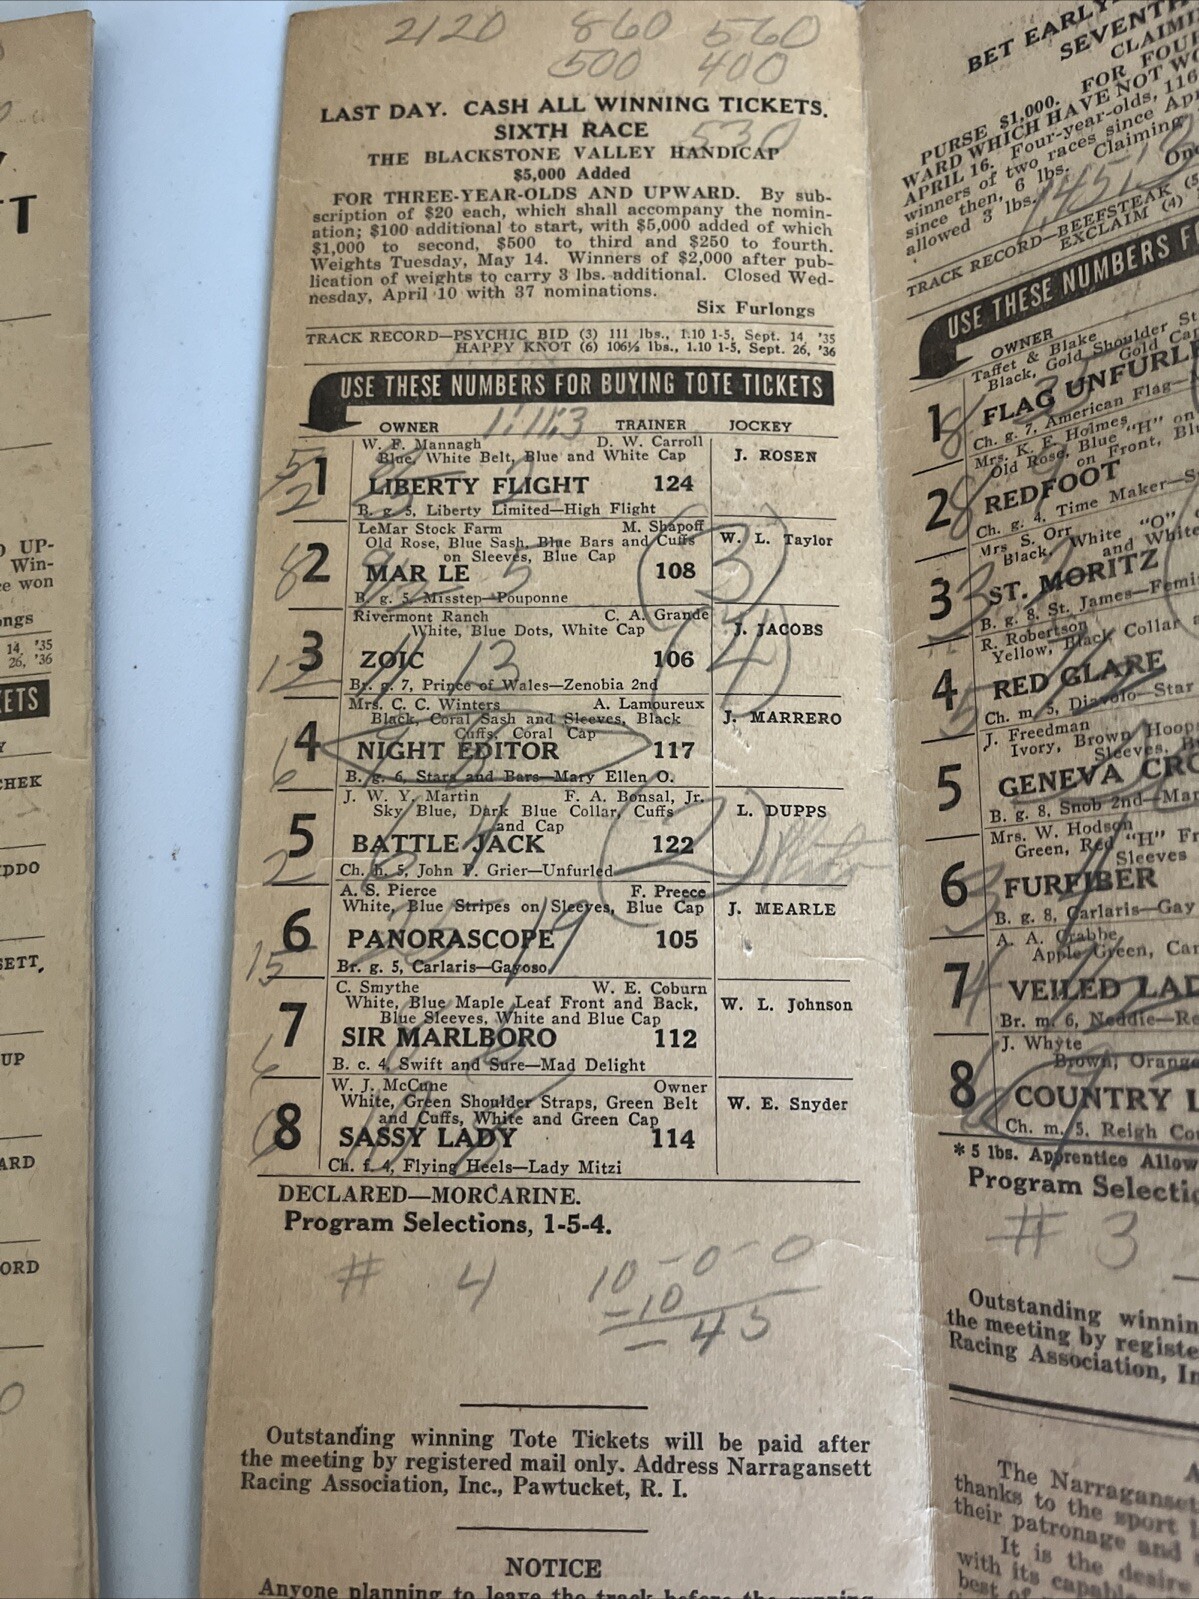 2120 860 560
500 400
LAST DAY. CASH ALL WINNING TICKETS.
SIXTH RACE
530
THE BLACKSTONE VALLEY HANDICAP
$5,000 Added
FOR THREE-YEAR-OLDS AND UPWARD. By sub-
scription of $20 each, which shall accompany the nomin-
ation; $100 additional to start, with $5,000 added of which
$1,000 to second, $500 to third and $250 to fourth.
Weights Tuesday, May 14. Winners of $2,000 after pub-
lication of weights to carry 3 lbs. additional. Closed Wed-
nesday, April 10 with 37 nominations.
Six Furlongs
TRACK RECORD—PSYCHIC BID (3) 111 lbs., 1.10 1-5, Sept. 14, '35
HAPPY KNOT (6) 106½ lbs., 1.10 1-5, Sept. 26, '36
USE THESE NUMBERS FOR BUYING TOTE TICKETS
OWNER TRAINER JOCKEY
W. F. Mannagh D. W. Carroll
Blue, White Belt, Blue and White Cap
1 LIBERTY FLIGHT 124 J. ROSEN
B. g. 5, Liberty Limited—High Flight
LeMar Stock Farm M. Shapoff
Old Rose, Blue Sash, Blue Bars and Cuffs
on Sleeves, Blue Cap
2 MAR LE 108 W. L. Taylor
B. g. 5, Misstep—Pouponne
Rivermont Ranch C. A. Grande
White, Blue Dots, White Cap
3 ZOIC 106 J. JACOBS
Br. g. 7, Prince of Wales—Zenobia 2nd
Mrs. C. C. Winters A. Lamoureux
Black, Coral Sash and Sleeves, Black
Cuffs, Coral Cap
4 NIGHT EDITOR 117 J. MARRERO
B. g. 6, Stars and Bars—Mary Ellen O.
J. W. Y. Martin F. A. Bonsal, Jr.
Sky Blue, Dark Blue Collar, Cuffs
and Cap
5 BATTLE JACK 122 L. DUPPS
Ch. h. 5, John P. Grier—Unfurled
A. S. Pierce F. Preece
White, Blue Stripes on Sleeves, Blue Cap
6 PANORASCOPE 105 J. MEARLE
Br. g. 5, Carlaris—Gayoso
C. Smythe W. E. Coburn
White, Blue Maple Leaf Front and Back,
Blue Sleeves, White and Blue Cap
7 SIR MARLBORO 112 W. L. Johnson
B. c. 4, Swift and Sure—Mad Delight
W. J. McCune Owner
White, Green Shoulder Straps, Green Belt
and Cuffs, White and Green Cap
8 SASSY LADY 114 W. E. Snyder
Ch. f. 4, Flying Heels—Lady Mitzi
DECLARED—MORCARINE.
Program Selections, 1-5-4.
# 4 10-0-0
-10
45
Outstanding winning Tote Tickets will be paid after
the meeting by registered mail only. Address Narragansett
Racing Association, Inc., Pawtucket, R. I.
NOTICE
Anyone planning to leave the track before the running
BET EARLY
SEVENTH
CLAIMI
PURSE $1,000. FOR FOUR
WARD WHICH HAVE NOT WO
APRIL 16. Four-year-olds, 116
winners of two races since Apr
since then, 6 lbs. Claiming
allowed 3 lbs. One
TRACK RECORD—BEEFSTEAK (5
EXCLAIM (4)
USE THESE NUMBERS F
OWNER
Taffet & Blake
Black, Gold Shoulder St
Gold Ca
1 FLAG UNFURLE
Ch. g. 7, American Flag—
Mrs. K. E. Holmes
Old Rose, Blue "H" on
on Front, Blu
2 REDFOOT
Ch. g. 4, Time Maker—S
Mrs S. Orr
Black, White "O"
and White
3 ST. MORITZ
B. g. 8, St. James—Femi
R. Robertson
Yellow, Black Collar a
4 RED GLARE
Ch. m. 5, Diavolo—Star
J. Freedman
Ivory, Brown Hoop
Sleeves, B
5 GENEVA CRO
B. g. 8, Snob 2nd—Mar
Mrs. W. Hodson
Green, Red "H" Fr
Sleeves
6 FURFIBER
B. g. 8, Carlaris—Gay
A. A. Crabbe
Apple Green, Car
7 VEILED LAD
Br. m. 6, Neddie—Re
J. Whyte
Brown, Orange
8 COUNTRY L
Ch. m. 5, Reigh Cou
* 5 lbs. Apprentice Allow
Program Selectio
# 3
Outstanding winnin
the meeting by registe
Racing Association, In
The Narraganset
thanks to the sport
their patronage and
It is the desire
with its capable
best of